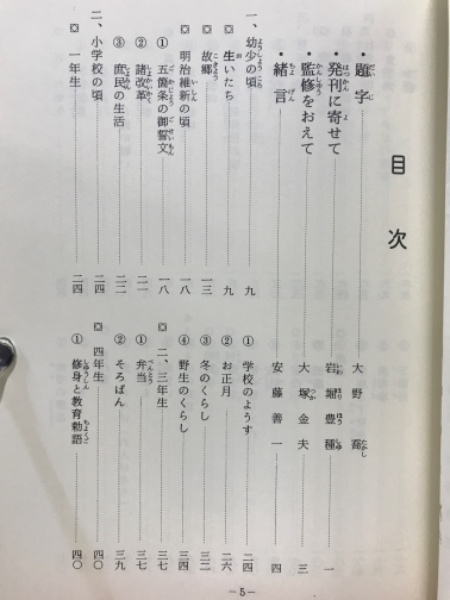 目次
・題字 大野 喬
・発刊に寄せて 岩堀豊種 一
・監修をおえて 大塚金夫 三
・緒言 安藤善一 四
一、幼少の頃 九
◻ 生いたち 九
◻ 故郷 一三
◻ 明治維新の頃 一八
① 五箇条の御誓文 一八
② 諸改革 二一
③ 庶民の生活 二二
二、小学校の頃 二四
◻ 一年生 二四
① 学校のようす 二四
② お正月 二六
③ 冬のくらし 三二
④ 野生のくらし 三四
◻ 二、三年生 三七
① 弁当 三七
② そろばん 三九
◻ 四年生 四〇
① 修身と教育勅語 四〇
−5−